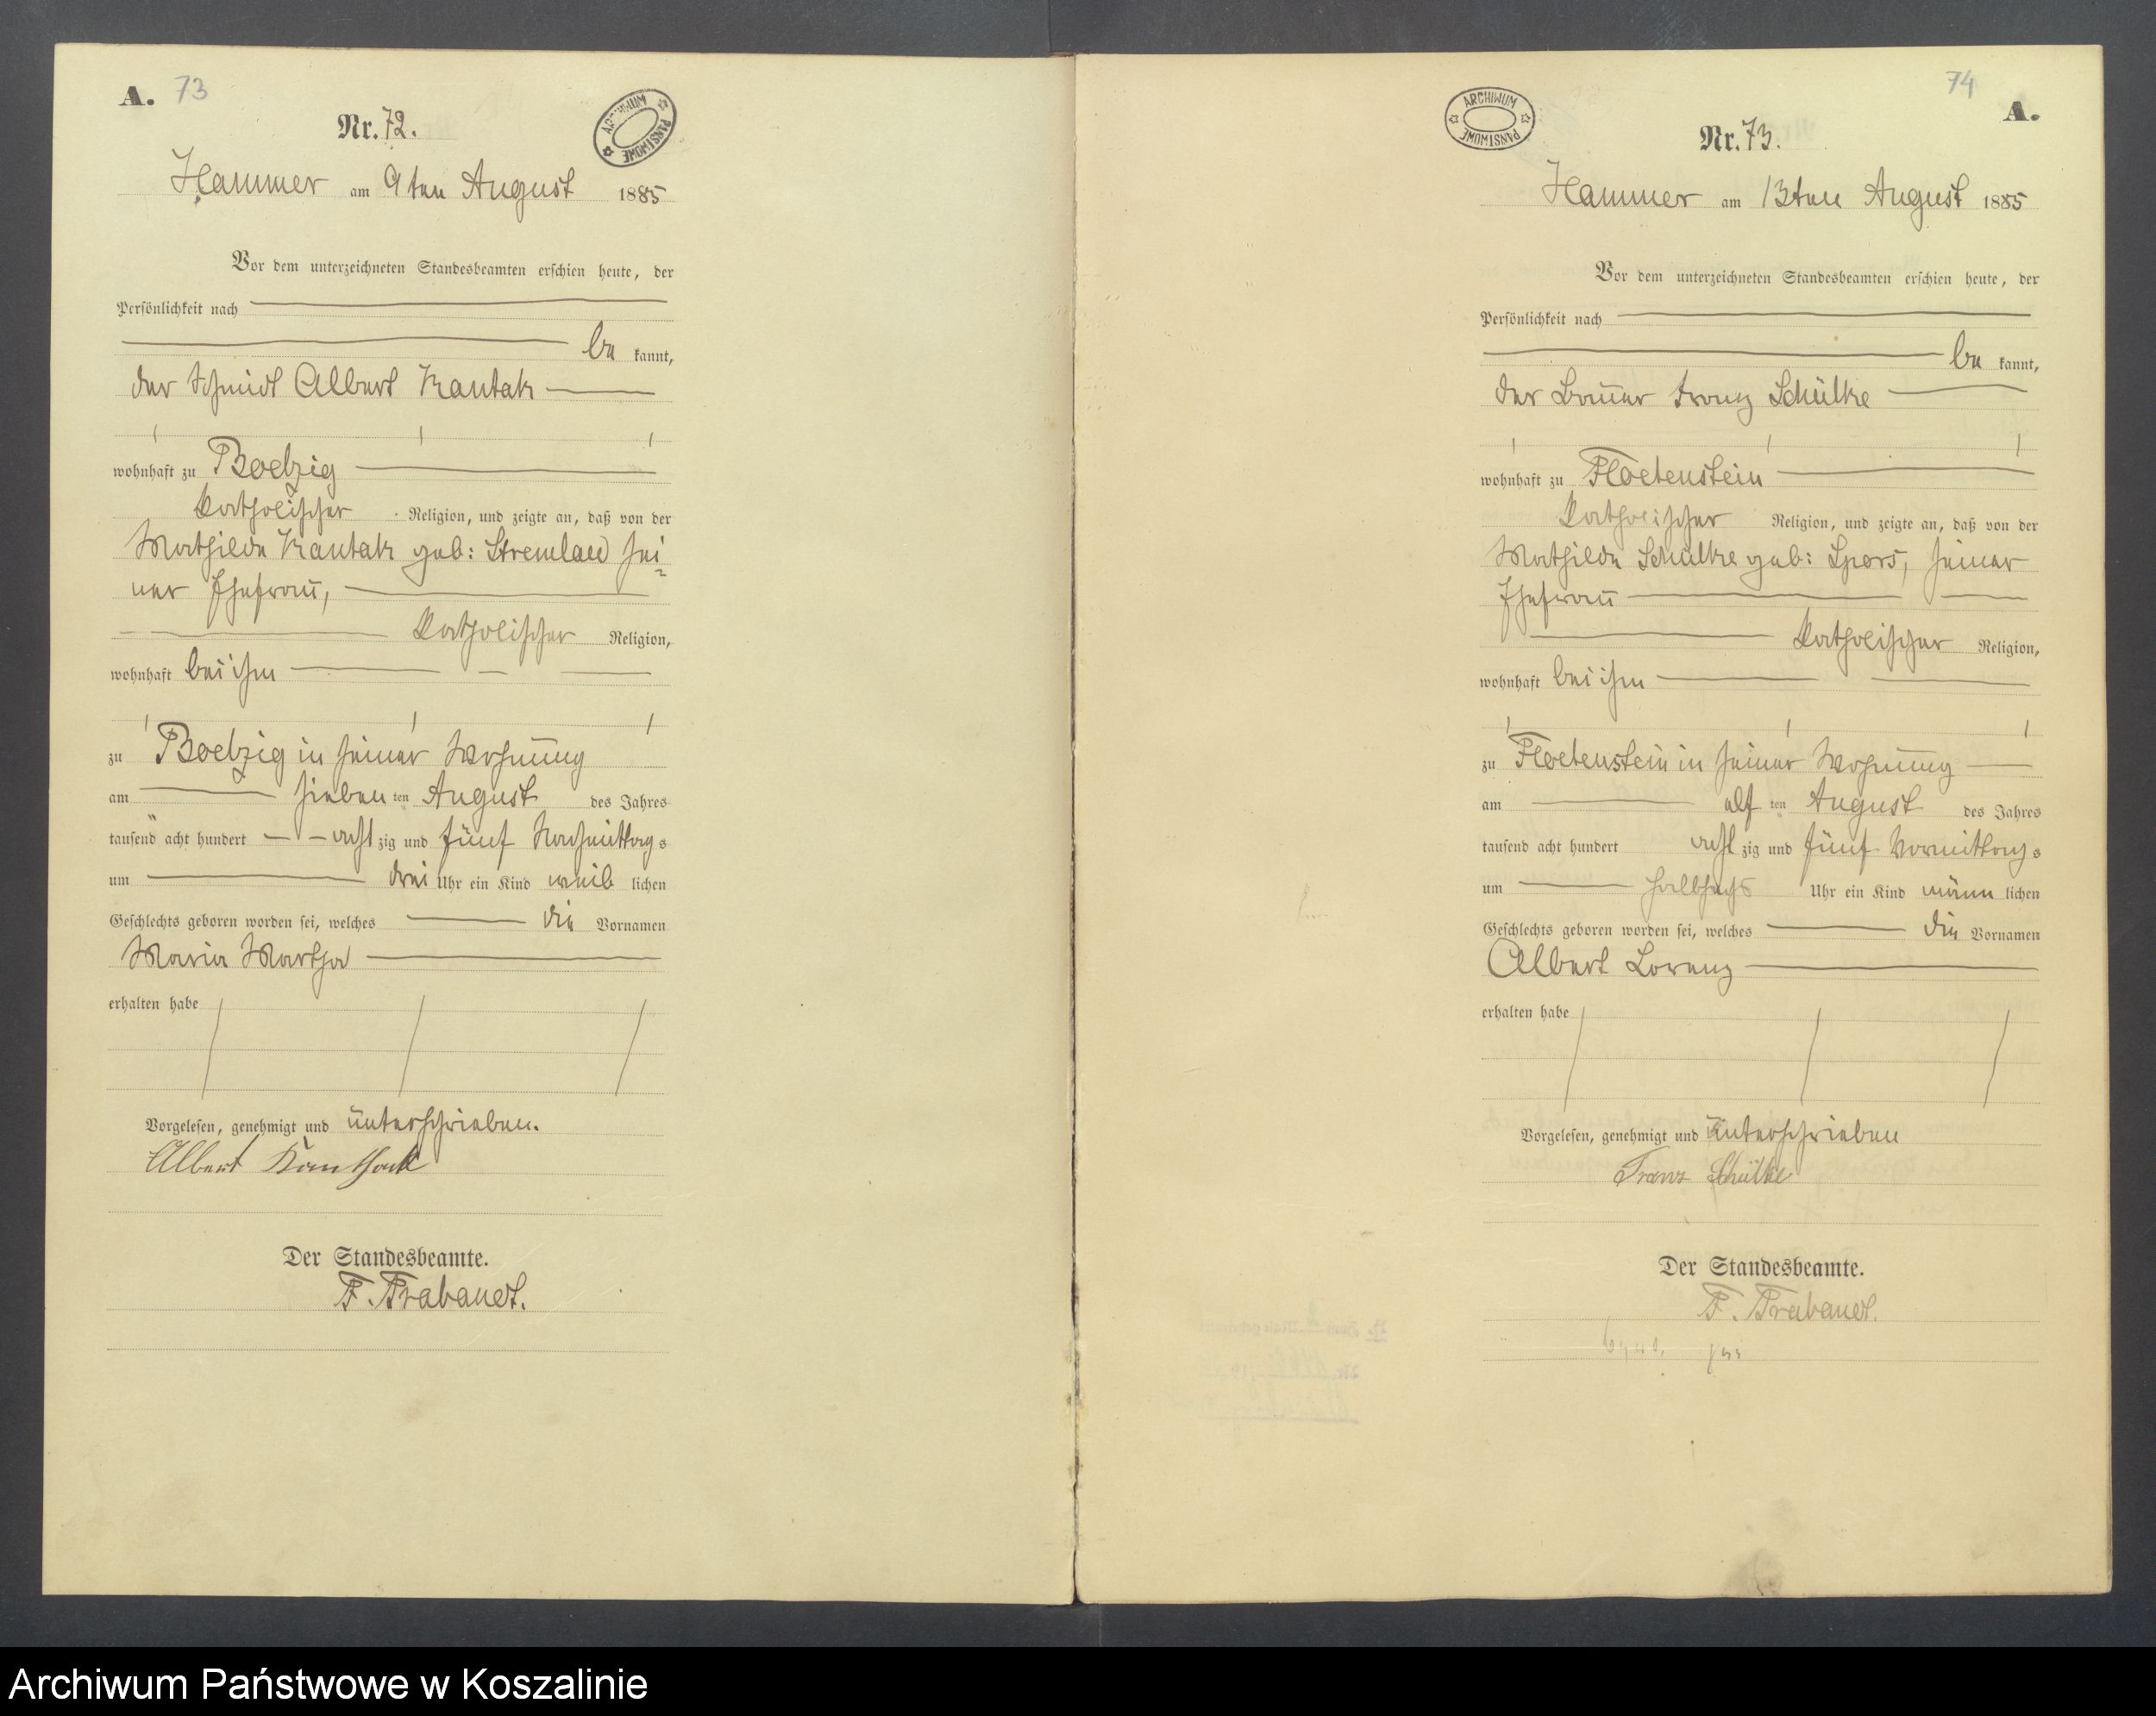 A. 73
Nr. 72.
ARCHIWUM PAŃSTWOWE
Hammer am 9ten August 1885
Vor dem unterzeichneten Standesbeamten erschien heute, der
Persönlichkeit nach
be kannt,
der Schmidt Albert Kantak
wohnhaft zu Boelzig
Katholischer Religion, und zeigte an, daß von der
Mathilde Kantak geb: Stremlau sei=
ner Ehefrau,
Katholischer Religion,
wohnhaft bei ihm
zu Boelzig in seiner Wohnung
am sieben ten August des Jahres
tausend acht hundert acht zig und fünf Nachmittag s
um drei Uhr ein Kind weib lichen
Geschlechts geboren worden sei, welches die Vornamen
Maria Martha
erhalten habe
Vorgelesen, genehmigt und unterschrieben.
Albert Kanthack
Der Standesbeamte.
F. Trabandt.
74
A.
ARCHIWUM PAŃSTWOWE
Nr. 73.
Hammer am 13ten August 1885
Vor dem unterzeichneten Standesbeamten erschien heute, der
Persönlichkeit nach
be kannt,
der Bauer Franz Schülke
wohnhaft zu Floetenstein
Katholischer Religion, und zeigte an, daß von der
Mathilde Schülke geb: Spors, seiner
Ehefrau
Katholischer Religion,
wohnhaft bei ihm
zu Floetenstein in seiner Wohnung
am elf ten August des Jahres
tausend acht hundert acht zig und fünf Vormittag s
um halbsechs Uhr ein Kind männ lichen
Geschlechts geboren worden sei, welches die Vornamen
Albert Lorenz
erhalten habe
Vorgelesen, genehmigt und unterschrieben
Franz Schülke
Der Standesbeamte.
F. Trabandt.
Archiwum Państwowe w Koszalinie